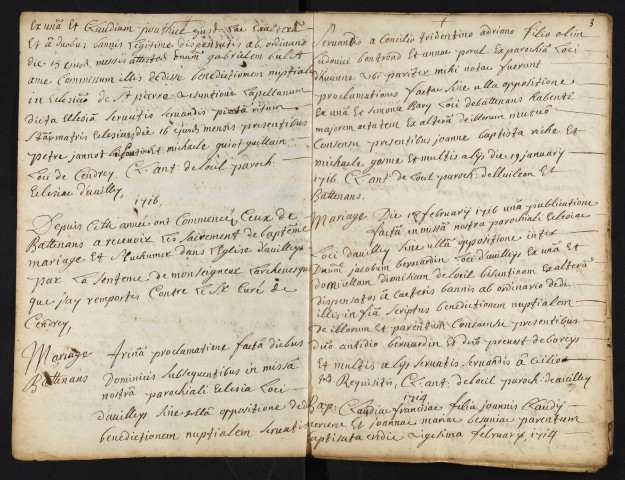 ex unâ Et Claudiam pouthet ejusdem ex alterâ
Et â duobus bannis legitime dispensatis ab ordinario
die 15 ejusd mensis gabrielem bulet
ame Commissum illis dedisse benedictionem nuptialem
in Ecclesiâ de St pierre Capellanum
dicta Ecclesiâ servatis servandis ritum
matris Ecclesiae, die 16 ejusd mensis presentibus
petro jannot et michaele guiot
Loci de Cendrey. Cl. ant. de loeil paroch.
Ecclesiae d'avilley,
1716,
Depuis Cette année ont Commencé, Ceux de
Battenans a recevoir Les sacrement de bapteme
mariage Et Sepulture dans l'Eglise d'avilley
par La Sentence de monseigneur L'archevesque
que j'ay remportes Contre le Sr Curé de
Cendrey,
Mariage
Battenans
trinâ proclamatione factâ diebus
Dominicis subsequentibus in missâ
nostrâ parochiali Ecclesia Loci
d'avilley sine ullâ oppositione dedi
benedictionem nuptialem servatis
3
servandis a Concilio tridentino adriano filio olim
Ludovici bontrond Et annae ex parochiâ Loci
dhuanne Ubi pariter mihi notae fuerunt
proclamationes factae sine ulla oppositione
ex unâ Et simonia Bary Loci de battenans habenti
majorem aetatem Ex alterâ de illorum mutuo
Consensu presentibus joanne baptista riche Et
michaele goime Et multis alijs die 19 january
1716 Cl. ant. de Loeil paroch: d'avilley Et
Battenans.
Mariage Die 18 february 1716 unâ publicatione
factâ in missâ nostra parochiali Ecclesiae
Loci d'avilley sine ullâ oppositione inter
Dnum jacobum bernardin Loci d'avilley Ex unâ Et
domicellam dionisiam de loeil bisuntinam Ex alterâ
dispensatos â Caeteris bannis ab ordinario dedi
illis in fiâ scriptus benedictionem nuptialem
de illorum et parentum Consensu presentibus
dno antidio bernardin Et dno prevost
Et multis alijs servatis servandis â Cilio
trid. Requisitis, Cl. ant. de loeil paroch: d'avilley
1714
Bap: Claudia francisca filia joannis Claudij
Et joannae mariae besancie parentum
baptisata est die Vigesima february 1714